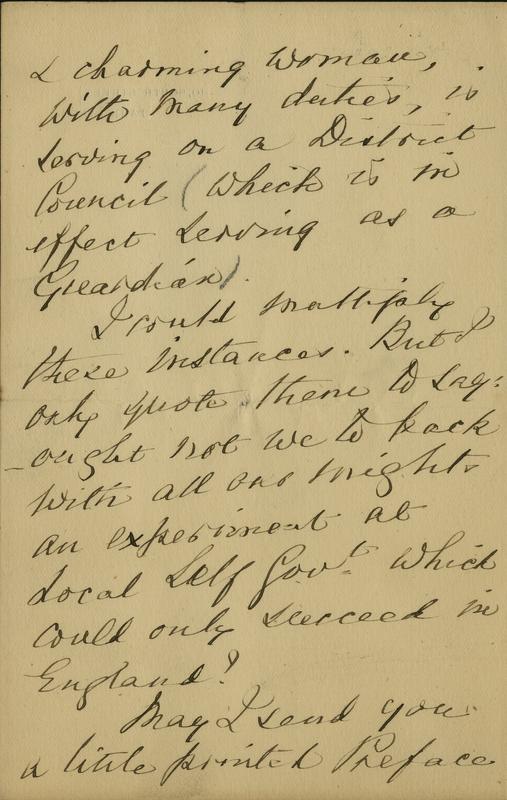 & charming woman,
with many duties, is
serving on a District
Council (which is in
effect serving as a
Guardian).
I could multiply
these instances. But I
only quote them to say:
- ought not we to back
with all our mights
an experiment at
Local Self Govt. which
could only succeed in
England?
May I send you
a little printed Preface